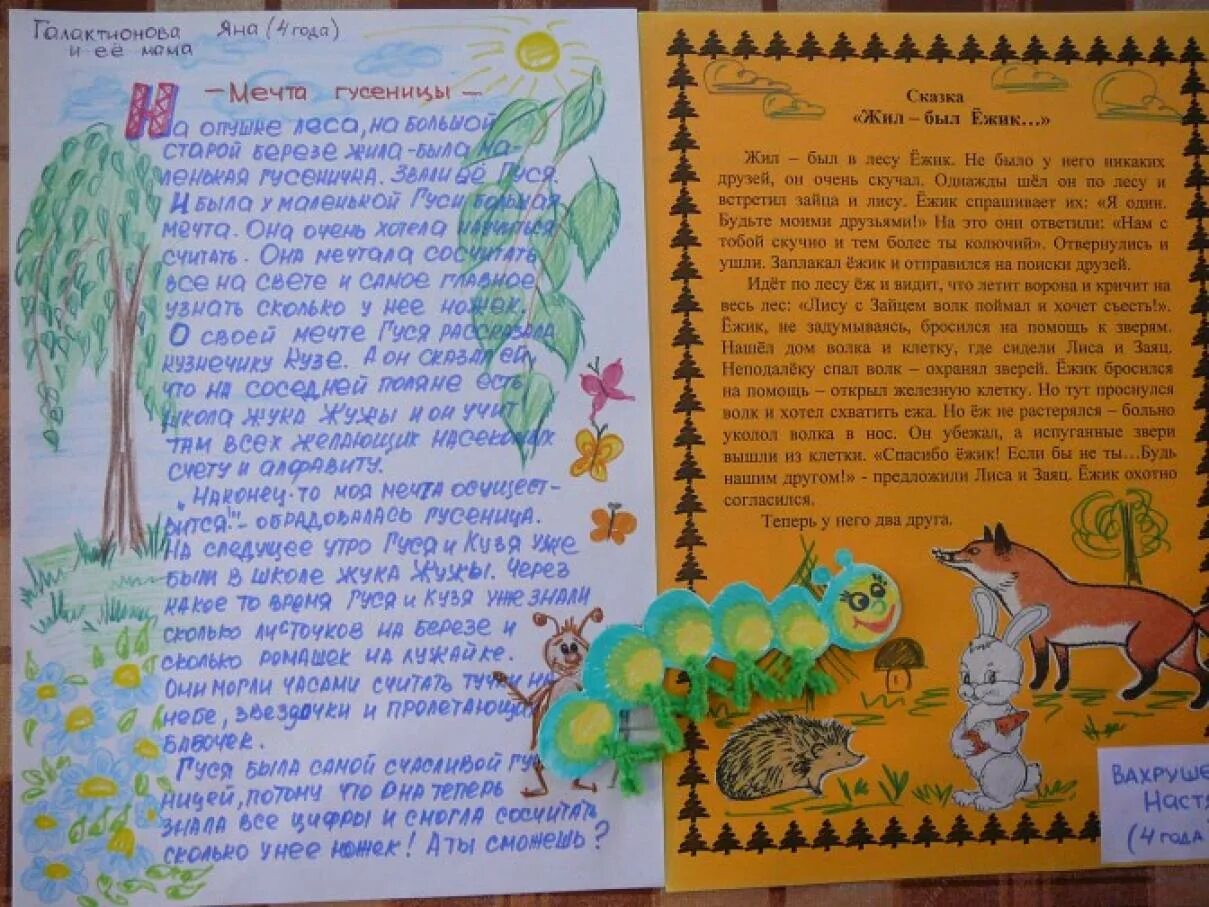 Галактионова Яна (4 года)
и её мама
- Мечта гусеницы -
На опушке леса, на большой
старой березе жила-была ма-
ленькая гусеничка. Звали ее Гуся.
И была у маленькой Гуси большая
мечта. Она очень хотела научиться
считать. Она мечтала сосчитать
все на свете и самое главное
узнать сколько у нее ножек.
О своей мечте Гуся рассказала
кузнечику Кузе. А он сказал ей,
что на соседней поляне есть
школа жука Жужы и он учит
там всех желающих насекомых
счету и алфавиту.
"Наконец-то моя мечта осущест-
вится!" - обрадовалась гусеница.
На следущее утро Гуся и Кузя уже
был в школе жука Жужы. Через
какое то время Гуся и Кузя уже знали
сколько листочков на березе и
сколько ромашек на лужайке.
Они могли часами считать тучки на
небе, звездочки и пролетающих
бабочек.
Гуся была самой счасливой гу
ницей, потому что она теперь
знала все цифры и смогла сосчитать
сколько у нее ножек! А ты сможешь?
Сказка
«Жил – был Ёжик…»
Жил – был в лесу Ёжик. Не было у него никаких
друзей, он очень скучал. Однажды шёл он по лесу и
встретил зайца и лису. Ёжик спрашивает их: «Я один.
Будьте моими друзьями!» На это они ответили: «Нам с
тобой скучно и тем более ты колючий». Отвернулись и
ушли. Заплакал ёжик и отправился на поиски друзей.
Идёт по лесу ёж и видит, что летит ворона и кричит на
весь лес: «Лису с Зайцем волк поймал и хочет съесть!».
Ёжик, не задумываясь, бросился на помощь к зверям.
Нашёл дом волка и клетку, где сидели Лиса и Заяц.
Неподалёку спал волк – охранял зверей. Ёжик бросился
на помощь – открыл железную клетку. Но тут проснулся
волк и хотел схватить ежа. Но ёж не растерялся – больно
уколол волка в нос. Он убежал, а испуганные звери
вышли из клетки. «Спасибо ёжик! Если бы не ты…Будь
нашим другом!» - предложили Лиса и Заяц. Ёжик охотно
согласился.
Теперь у него два друга.
Вахруше
Настя
(4 года